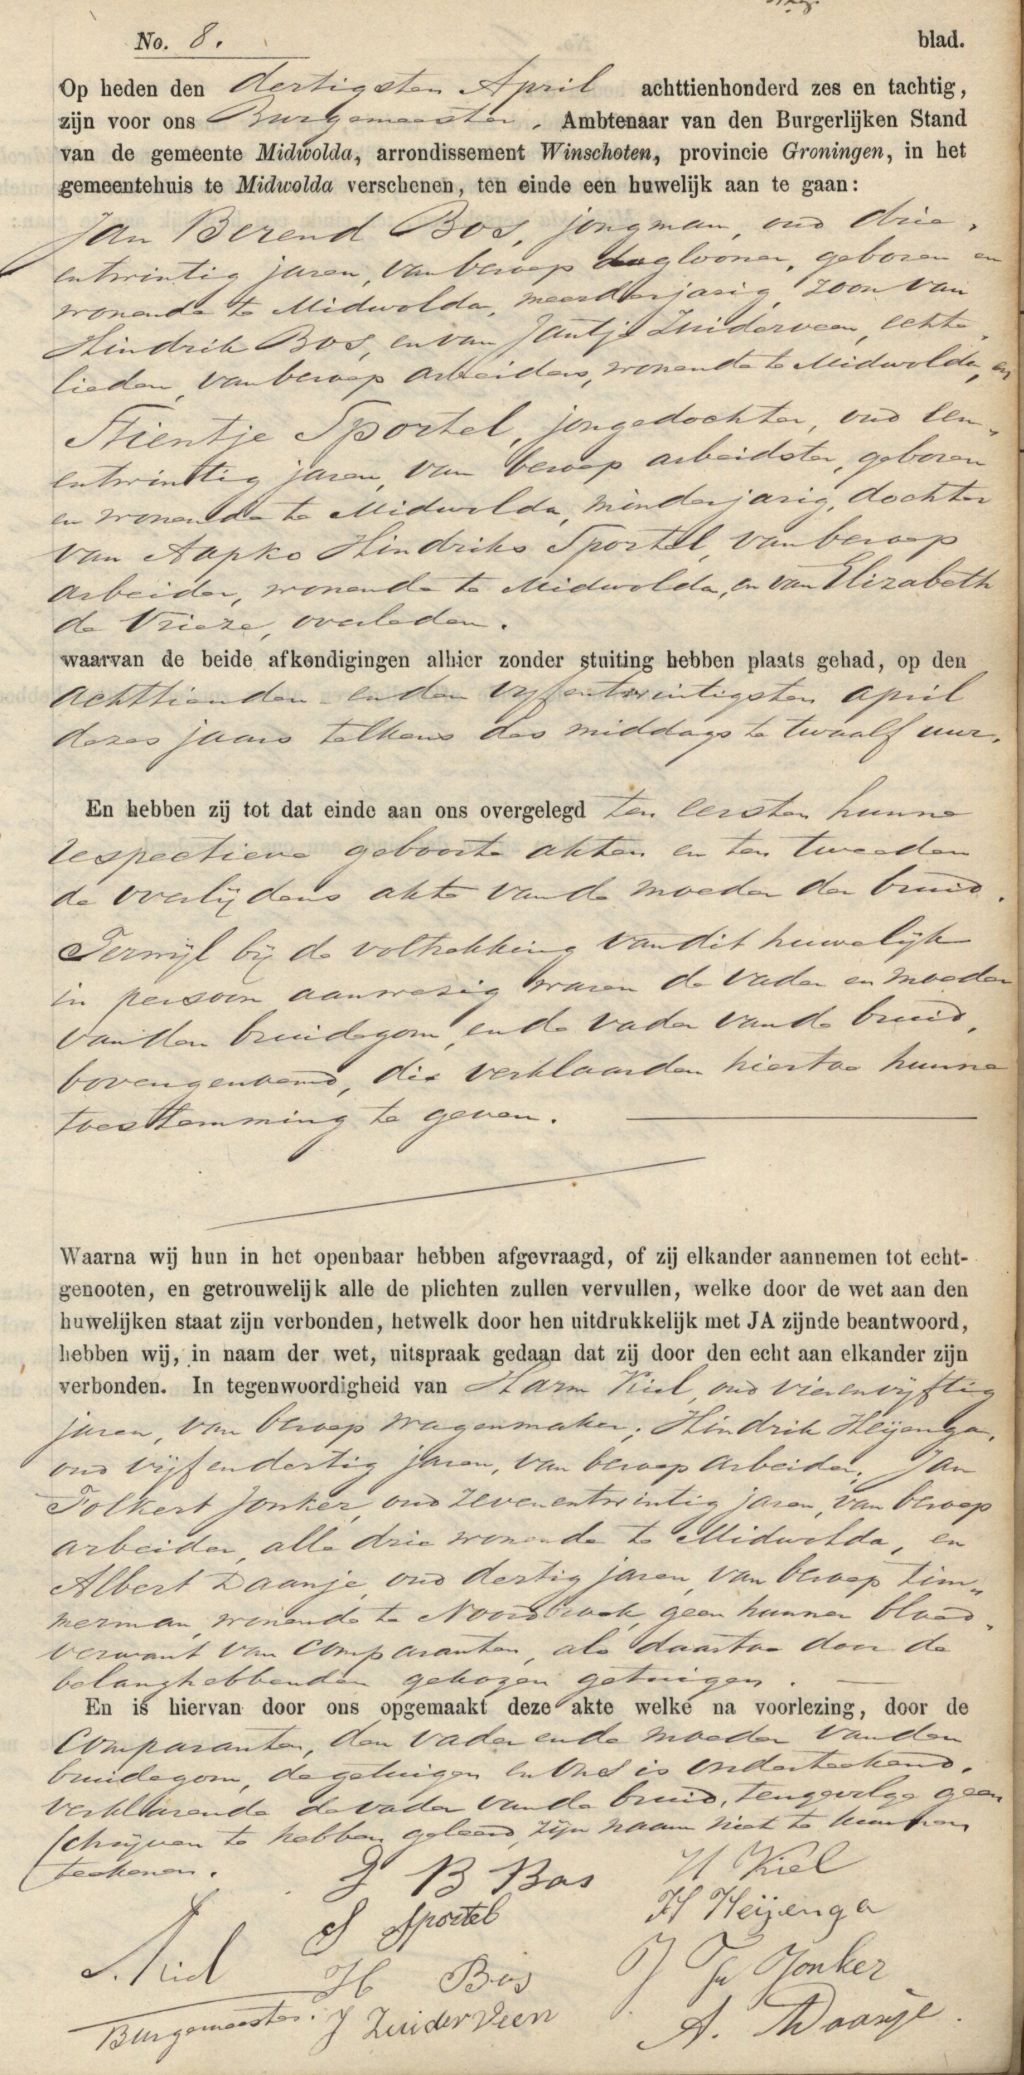 No. 8. blad.
Op heden den dertigsten April achttienhonderd zes en tachtig,
zijn voor ons Burgemeester, Ambtenaar van den Burgerlijken Stand
van de gemeente Midwolda, arrondissement Winschoten, provincie Groningen, in het
gemeentehuis te Midwolda verschenen, ten einde een huwelijk aan te gaan:
Jan Berend Bos, jongman, oud drie-
entwintig jaren, van beroep daglooner, geboren en
wonende te Midwolda, meerderjarig, zoon van
Hindrik Bos, en van Jantje Zuiderveen, echte-
lieden, van beroep arbeiders, wonende te Midwolda, en
Stientje Sportel, jongedochter, oud een-
entwintig jaren, van beroep arbeidster, geboren
en wonende te Midwolda, minderjarig, dochter
van Aapko Hindriks Sportel, van beroep
arbeider, wonende te Midwolda, en van Elizabeth
de Vrieze, overleden.
waarvan de beide afkondigingen alhier zonder stuiting hebben plaats gehad, op den
achttienden en den vyfentwintigsten april
dezes jaars telkens des middags te twaalf uur.
En hebben zij tot dat einde aan ons overgelegd ten eersten hunne
respectieve geboorte akten en ten tweeden
de overlijdens akte van de moeder der bruid.
Terwijl bij de voltrekking van dit huwelijk
in persoon aanwezig waren de vader en moeder
van den bruidegom, en de vader van de bruid,
bovengenoemd, die verklaarden hiertoe hunne
toestemming te geven.
Waarna wij hun in het openbaar hebben afgevraagd, of zij elkander aannemen tot echt-
genooten, en getrouwelijk alle de plichten zullen vervullen, welke door de wet aan den
huwelijken staat zijn verbonden, hetwelk door hen uitdrukkelijk met JA zijnde beantwoord,
hebben wij, in naam der wet, uitspraak gedaan dat zij door den echt aan elkander zijn
verbonden. In tegenwoordigheid van Harm Kiel, oud vierenvyftig
jaren, van beroep wagenmaker; Hindrik Heijenga,
oud vijfendertig jaren, van beroep arbeider; Jan
Folkert Jonker, oud zevenentwintig jaren, van beroep
arbeider, alle drie wonende te Midwolda, en
Albert Daanje, oud dertig jaren, van beroep tim-
merman, wonende te Noordbroek, geen hunner bloed-
verwant van comparanten, als daartoe door de
belanghebbenden gekozen getuigen.
En is hiervan door ons opgemaakt deze akte welke na voorlezing, door de
Comparanten, den vader en de moeder van den
bruidegom, de getuigen en ons is onderteekend,
verklarende de vader van de bruid, tengevolge geen
schrijven te hebben geleerd, zijn naam niet te kunnen
teekenen.
J B Bos H Kiel
S Sportel H Heijenga
Kiel H Bos J F Jonker
Burgemeester. J Zuiderveen A. Daanje.